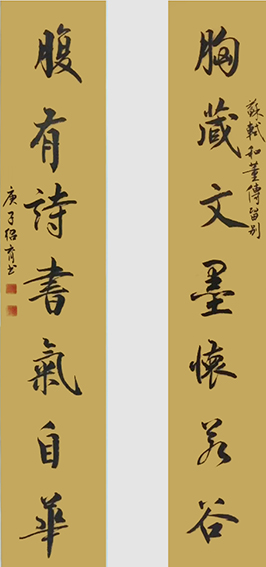 胸藏文墨懷若谷
蘇軾和董傳留別
腹有詩書氣自華
庚子紹育书